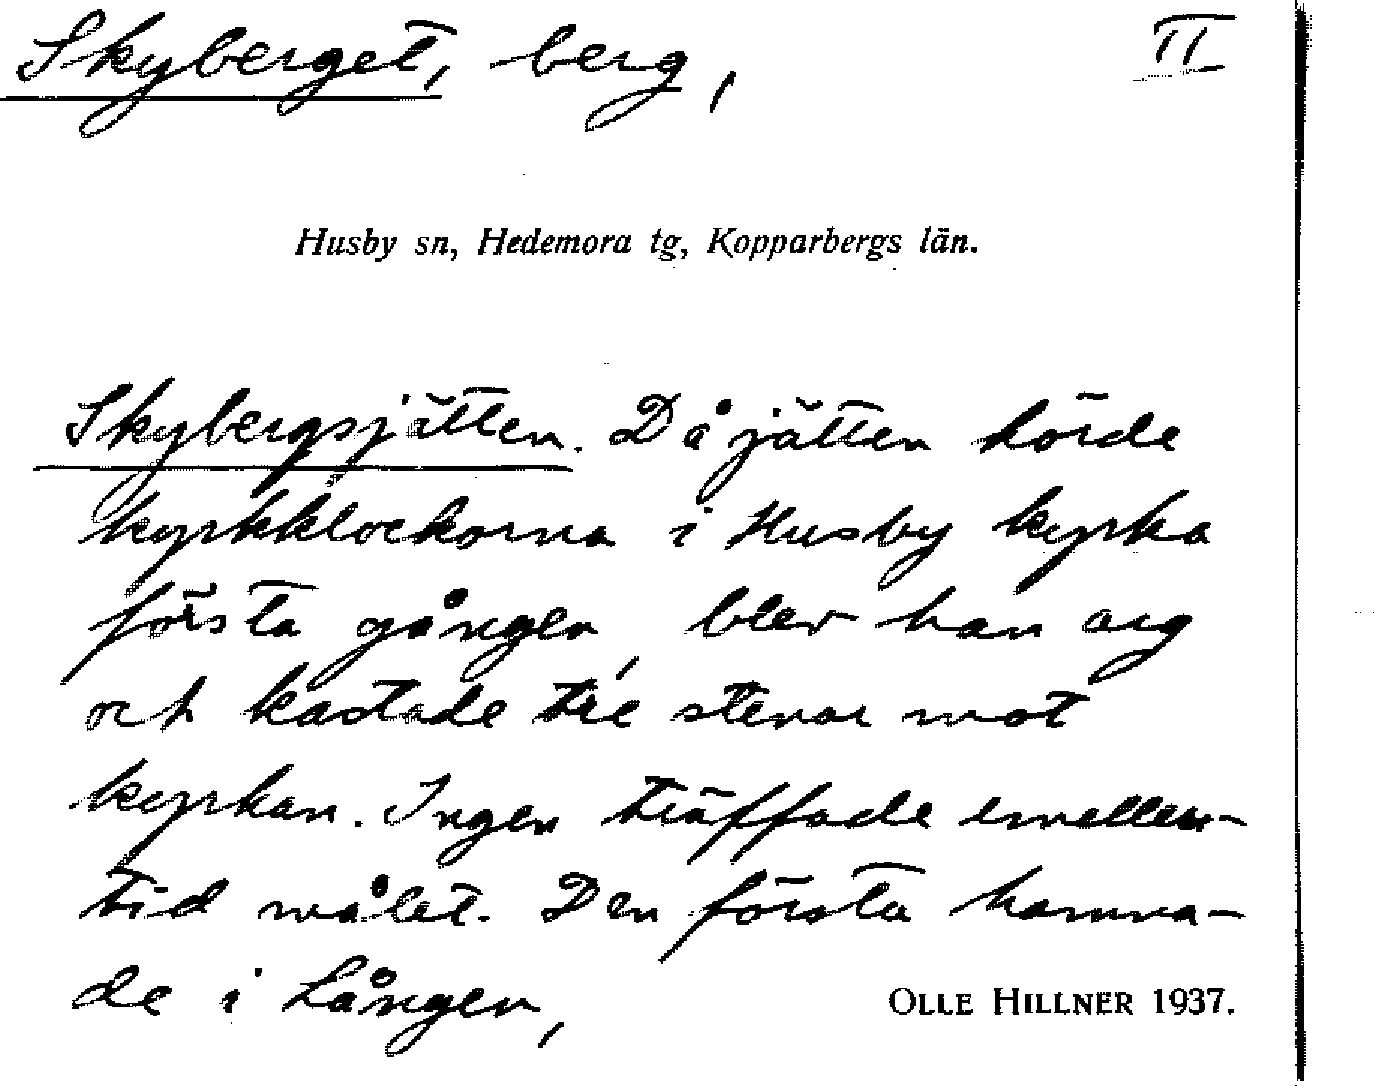 Skyberget, berg, II
Husby sn, Hedemora tg, Kopparbergs län.
Skybergsjätten. Då jätten hörde
kyrkklockorna i Husby kyrka
första gången, blev han arg
och kastade tre stenar mot
kyrkan. Ingen träffade emellen-
tid målet. Den första hamna-
de i Lången,
OLLE HILLNER 1937.